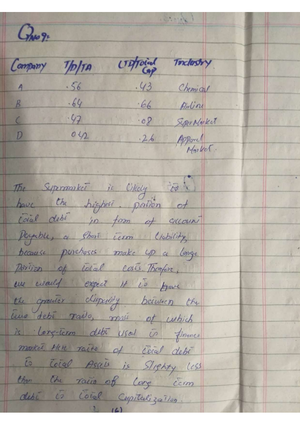 Qno 9:
Company T/D/TA LTD/Total Cap Industry
A .56 .43 Chemical
B .64 .66 Airline
C .47 .08 SuperMarket
D 0.42 .26 Apparel Market
The Supermarket is likely to
have the highest portion of
total debt in form of account
Payable, a short term liability,
because purchases make up a large
Portion of total costs Therefore,
we would expect it to have
the greater disparity between the
two debt ratio, main of which
is long-term debt used to finance
ratio of total debt
to total Assets is Slightly less
than the ratio of long term
debt to total Capitalization.